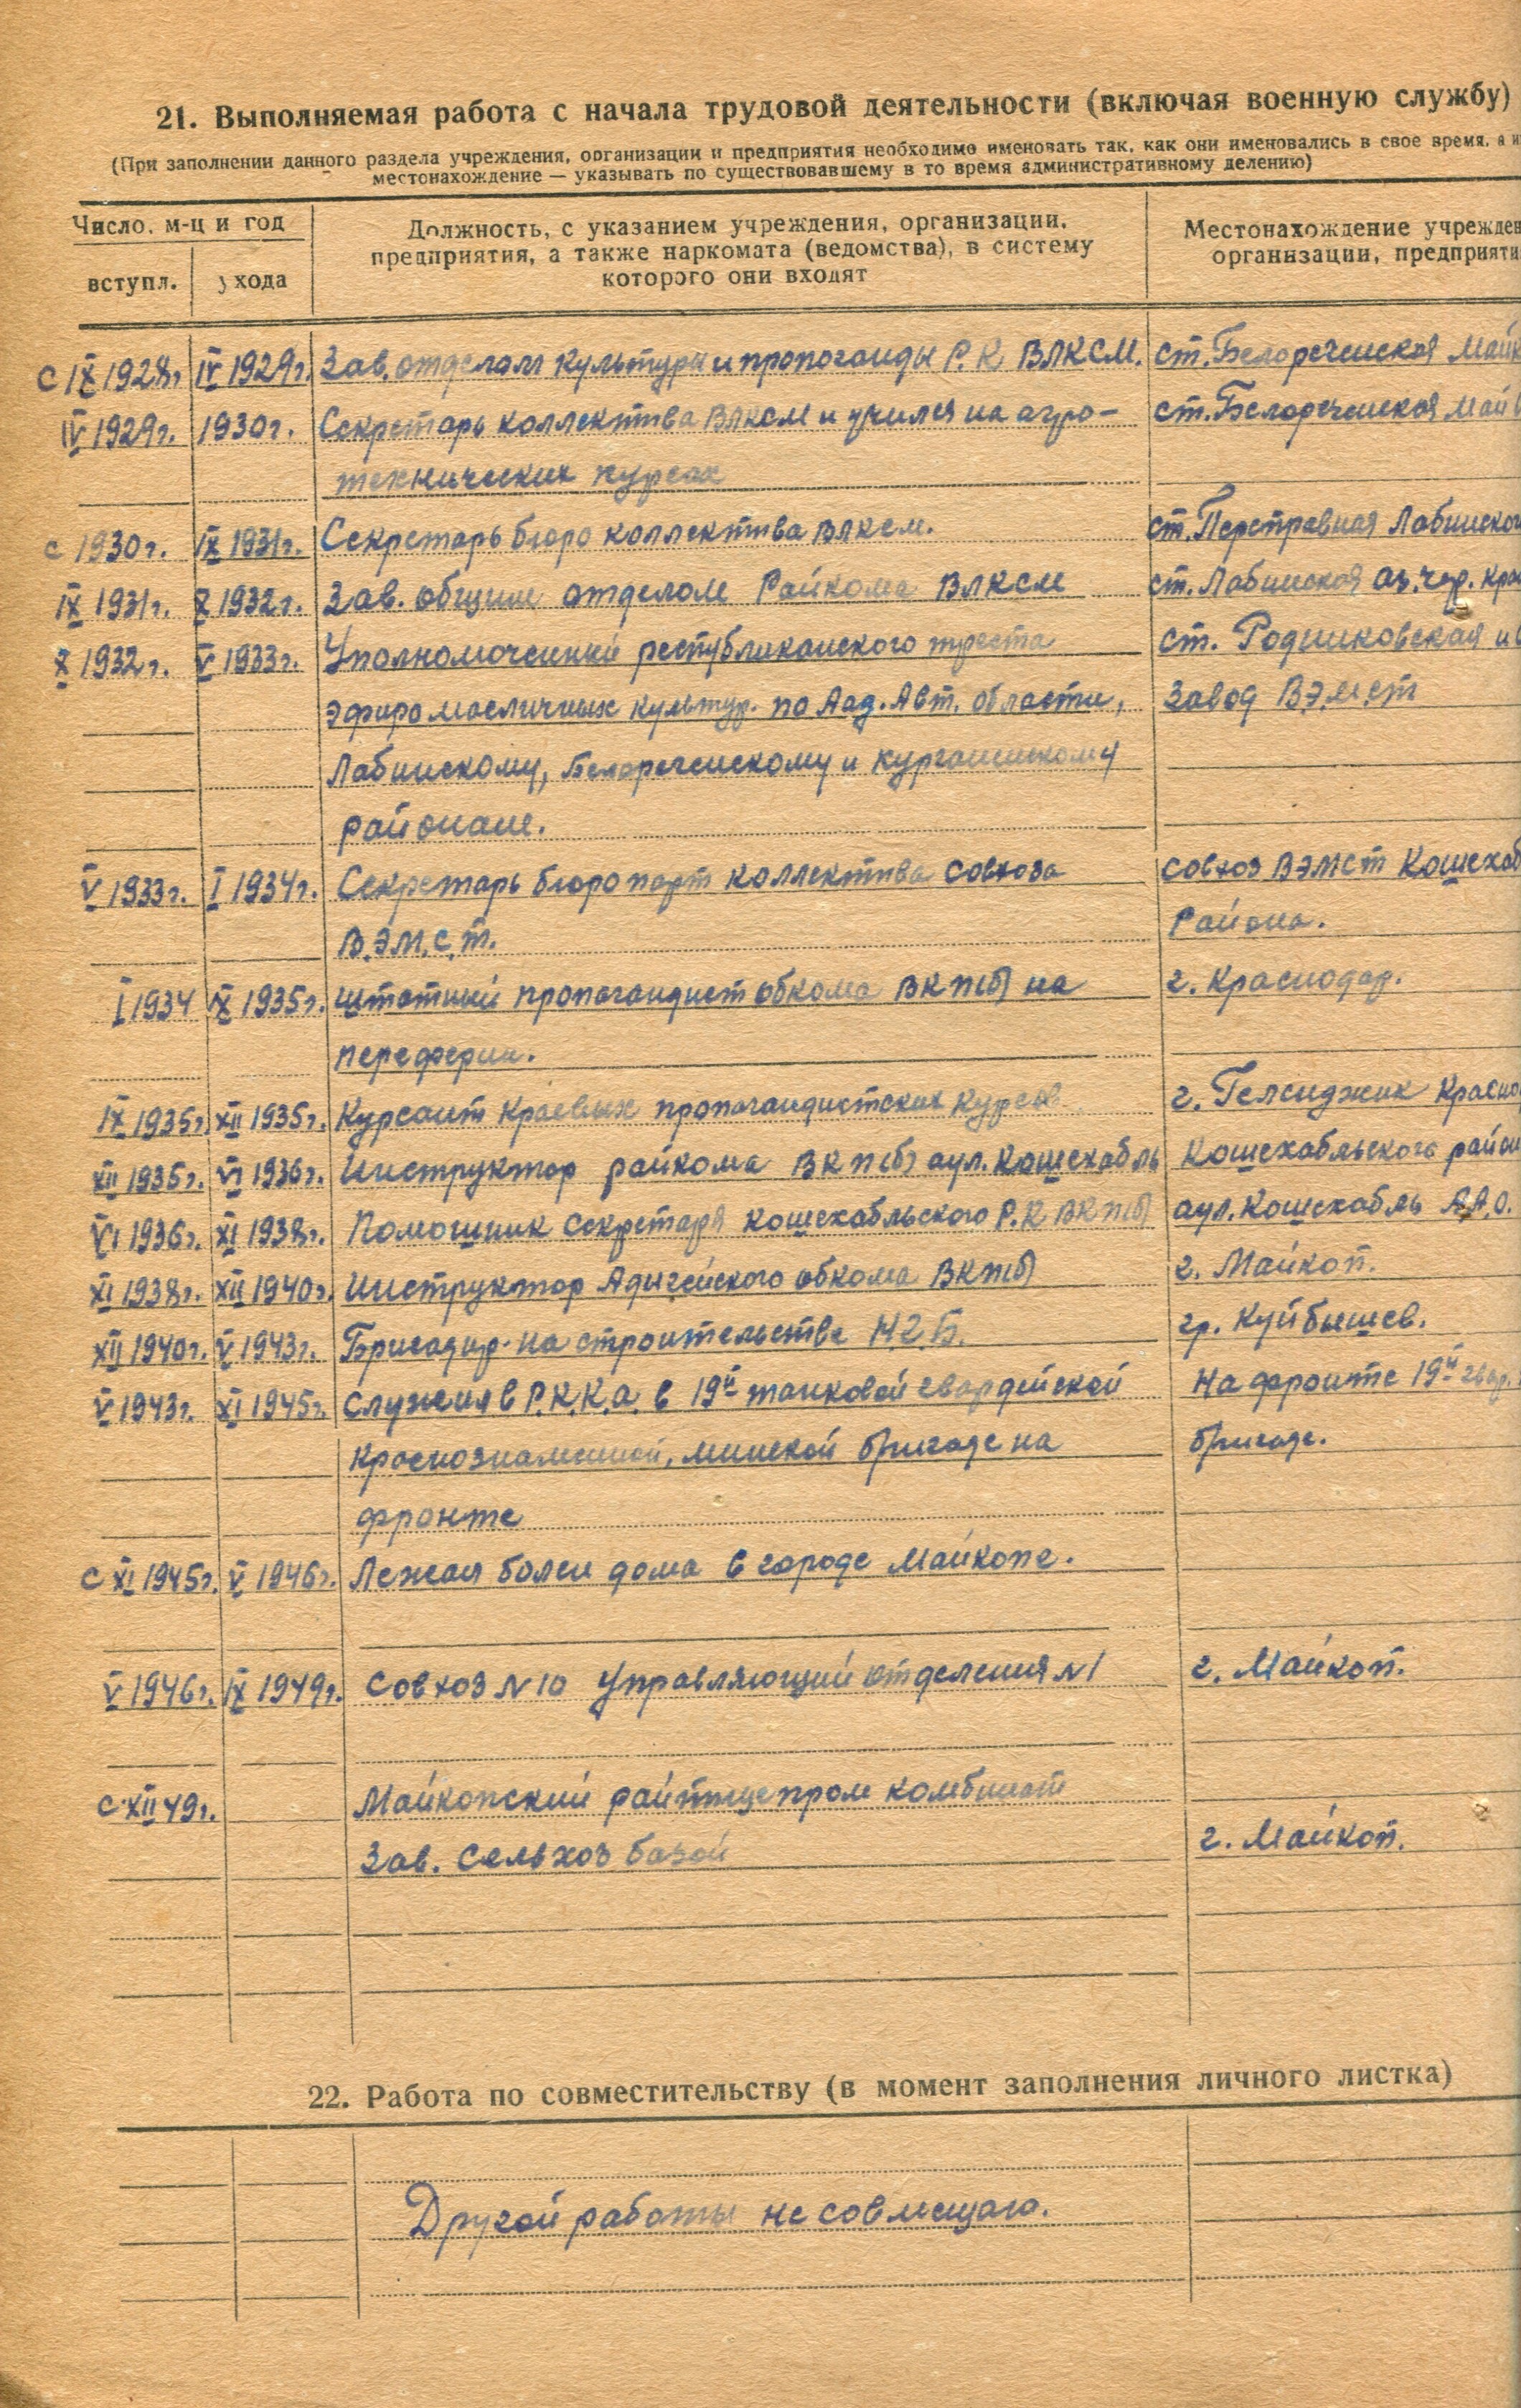 21. Выполняемая работа с начала трудовой деятельности (включая военную службу)
(При заполнении данного раздела учреждения, организации и предприятия необходимо именовать так, как они именовались в свое время, а и
местонахождение — указывать по существовавшему в то время административному делению)
Число, м-ц и год
вступл. ухода
Должность, с указанием учреждения, организации,
предприятия, а также наркомата (ведомства), в систему
которого они входят
Местонахождение учрежден
организации, предприяти
с IX 1928г IV 1929г. Зав. отделам культуры и пропоганды Р.К ВЛКСМ. ст. Белореченская Майк
IV 1929г. 1930г. Секретарь коллектива ВЛКСМ и учился на агро- ст. Белореченская Май
технических курсах
с 1930г. IX 1931г. Секретарь бюро коллектива ВЛКСМ. ст. Переправная Лабинског
IX 1931г. X 1932г. Зав. общим отделом Райкома ВЛКСМ ст. Лабинская аз.чер. кра
X 1932г. V 1933г. Уполномоченный республиканского треста ст. Родниковская и
эфиромасличных культур. по Аад. Авт. области, завод В.Э.М.ст
Лабинскому, Белореченскому и Курганинскому
районам.
V 1933г. I 1934г. Секретарь бюро парт коллектива совхоза совхоз ВЭМСТ Кошехаб
В.Э.М.С.Т. Района.
I 1934 IX 1935г. Штатный пропогандист обкома ВКП(б) на г. Краснодар.
переферии.
IX 1935г. XII 1935г. Курсант Краевых пропогандистских курсов г. Геленджик Красно
XII 1935г. VI 1936г. Инструктор райкома ВКП(б) аул. Кошехабль Кошехабльского райо
VI 1936г. XI 1938г. Помошник секретаря Кошехабльского Р.К ВКП(б) аул. Кошехабль А.А.О.
XI 1938г. XII 1940г. Инструктор Адыгейского обкома ВКП(б) г. Майкоп.
XII 1940г. V 1943г. Бригадир на строительстве Н.2.Б. гр. Куйбышев.
V 1943г. XI 1945г. Служил в Р.К.К.А. в 19й танковой гвардейской На фронте 19й гвар.
Краснознаменной, минской бригаде на бригаде.
фронте
с XI 1945г. V 1946г. Лежал болен дома в городе Майкопе.
V 1946г. IX 1949г. Совхоз N 10 Управляющий отделения N 1 г. Майкоп.
с XII 49г. Майкопский райпищепром комбинат
Зав. Сельхоз базой г. Майкоп.
22. Работа по совместительству (в момент заполнения личного листка)
Другой работы не совмещаю.